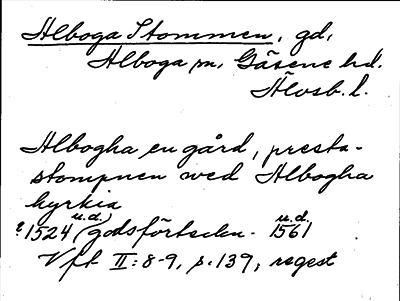 Alboga Stommen, gd,
Alboga sn, Gäsene hd.
Älvsb. l.
Albogha en gård, presta-
stompnen wed Albogha
kyrkia
u.d. u.d.
1524 (godsförteckn. 1561
Vft II: 8-9, s. 139, regest